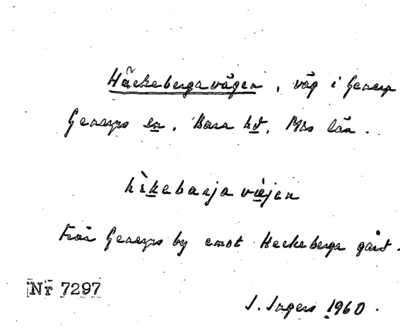 Häckebergavägen, väg i Genarp
Genarps sn, Bara hd, Mlms län.
hèkebarja väjen
Från Genarps by emot Häckeberga gård.
Nr 7297
J. Ingers 1960.